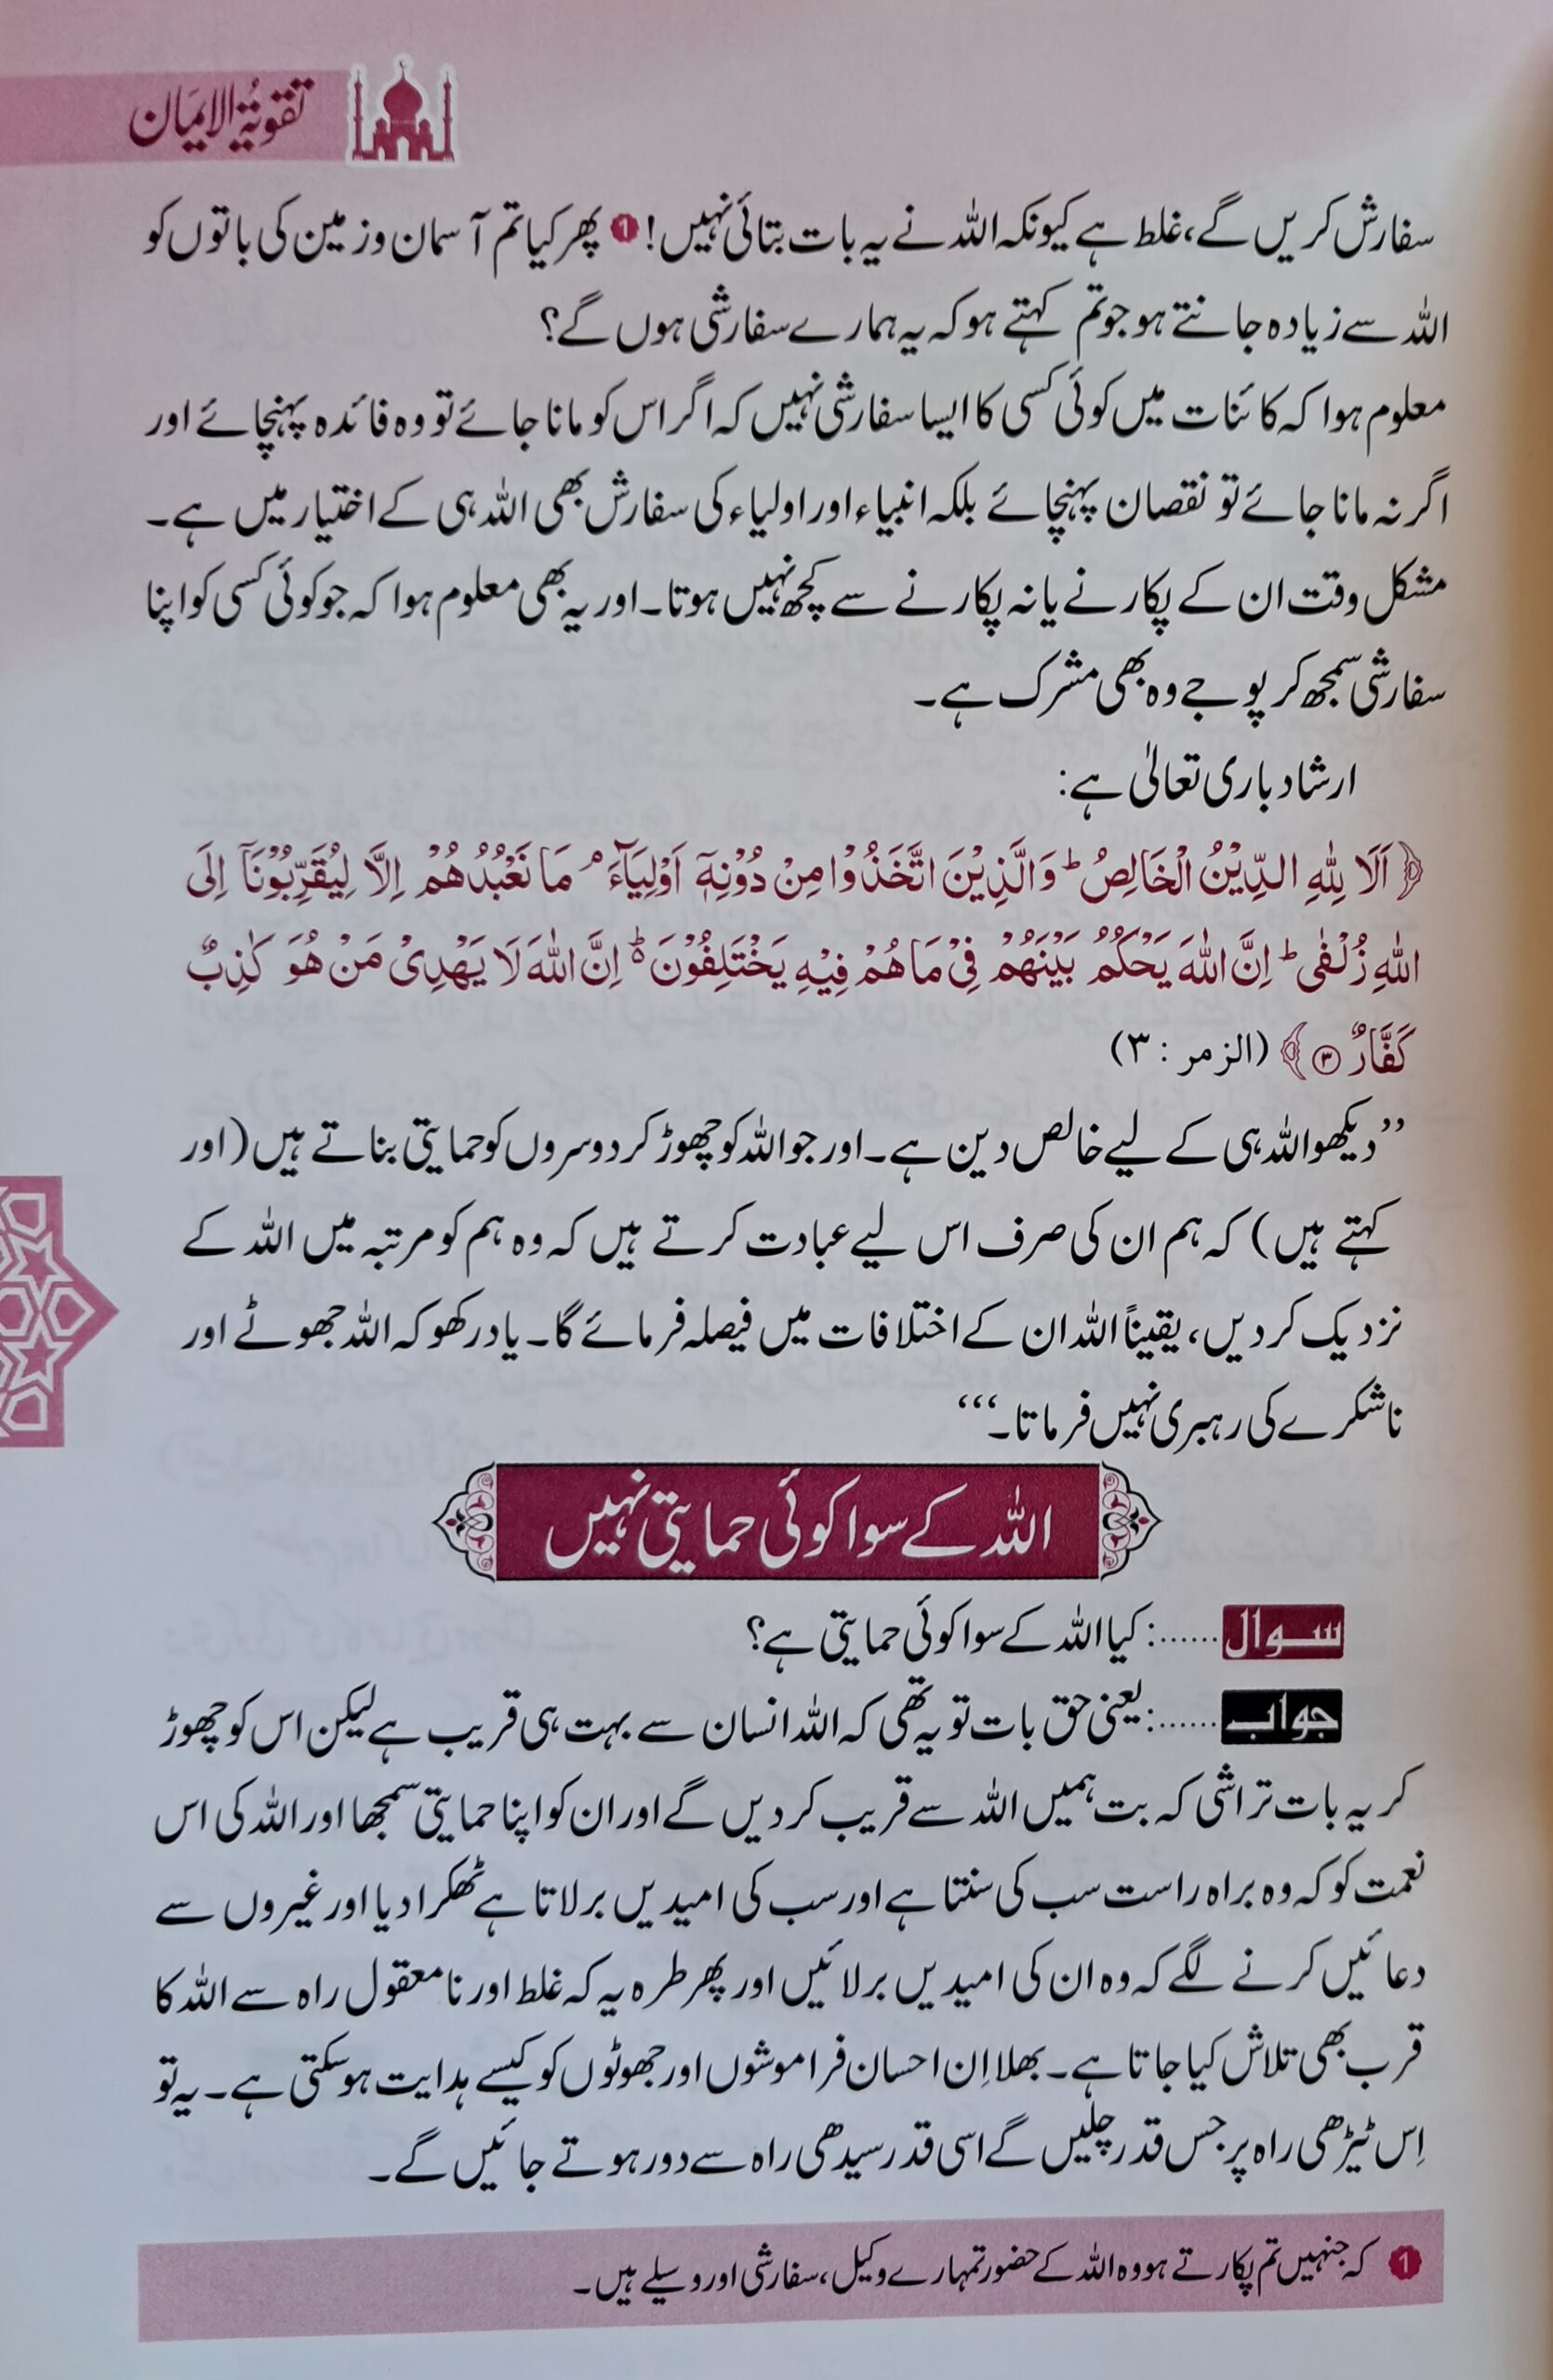 تقویۃ الایمان
سفارش کریں گے، غلط ہے کیونکہ اللہ نے یہ بات بتائی نہیں! 1 پھر کیا تم آسمان و زمین کی باتوں کو
اللہ سے زیادہ جانتے ہو جو تم کہتے ہو کہ یہ ہمارے سفارشی ہوں گے؟
معلوم ہوا کہ کائنات میں کوئی کسی کا ایسا سفارشی نہیں کہ اگر اس کو مانا جائے تو وہ فائدہ پہنچائے اور
اگر نہ مانا جائے تو نقصان پہنچائے بلکہ انبیاء اور اولیاء کی سفارش بھی اللہ ہی کے اختیار میں ہے۔
مشکل وقت ان کے پکارنے یا نہ پکارنے سے کچھ نہیں ہوتا۔ اور یہ بھی معلوم ہوا کہ جو کوئی کسی کو اپنا
سفارشی سمجھ کر پوجے وہ بھی مشرک ہے۔
ارشاد باری تعالیٰ ہے:
﴿اَلَا لِلّٰهِ الدِّيْنُ الْخَالِصُ ؕ وَالَّذِيْنَ اتَّخَذُوْا مِنْ دُوْنِهٖۤ اَوْلِيَآءَ ۘ مَا نَعْبُدُهُمْ اِلَّا لِيُقَرِّبُوْنَاۤ اِلَى
اللّٰهِ زُلْفٰى ؕ اِنَّ اللّٰهَ يَحْكُمُ بَيْنَهُمْ فِيْ مَا هُمْ فِيْهِ يَخْتَلِفُوْنَ ؕ۬ اِنَّ اللّٰهَ لَا يَهْدِيْ مَنْ هُوَ كٰذِبٌ
كَفَّارٌ ۝۳﴾ (الزمر : ۳)
’’دیکھو اللہ ہی کے لیے خالص دین ہے۔ اور جو اللہ کو چھوڑ کر دوسروں کو حمایتی بناتے ہیں (اور
کہتے ہیں) کہ ہم ان کی صرف اس لیے عبادت کرتے ہیں کہ وہ ہم کو مرتبہ میں اللہ کے
نزدیک کر دیں، یقیناً اللہ ان کے اختلافات میں فیصلہ فرمائے گا۔ یاد رکھو کہ اللہ جھوٹے اور
ناشکرے کی رہبری نہیں فرماتا۔‘‘‘
اللہ کے سوا کوئی حمایتی نہیں
سوال ......: کیا اللہ کے سوا کوئی حمایتی ہے؟
جواب ......: یعنی حق بات تو یہ تھی کہ اللہ انسان سے بہت ہی قریب ہے لیکن اس کو چھوڑ
کر یہ بات تراشی کہ بت ہمیں اللہ سے قریب کر دیں گے اور ان کو اپنا حمایتی سمجھا اور اللہ کی اس
نعمت کو کہ وہ براہ راست سب کی سنتا ہے اور سب کی امیدیں برلاتا ہے ٹھکرا دیا اور غیروں سے
دعائیں کرنے لگے کہ وہ ان کی امیدیں برلائیں اور پھر طرہ یہ کہ غلط اور نامعقول راہ سے اللہ کا
قرب بھی تلاش کیا جاتا ہے۔ بھلا اِن احسان فراموشوں اور جھوٹوں کو کیسے ہدایت ہوسکتی ہے۔ یہ تو
اِس ٹیڑھی راہ پر جس قدر چلیں گے اسی قدر سیدھی راہ سے دور ہوتے جائیں گے۔
1 کہ جنہیں تم پکارتے ہو وہ اللہ کے حضور تمہارے وکیل، سفارشی اور وسیلے ہیں۔